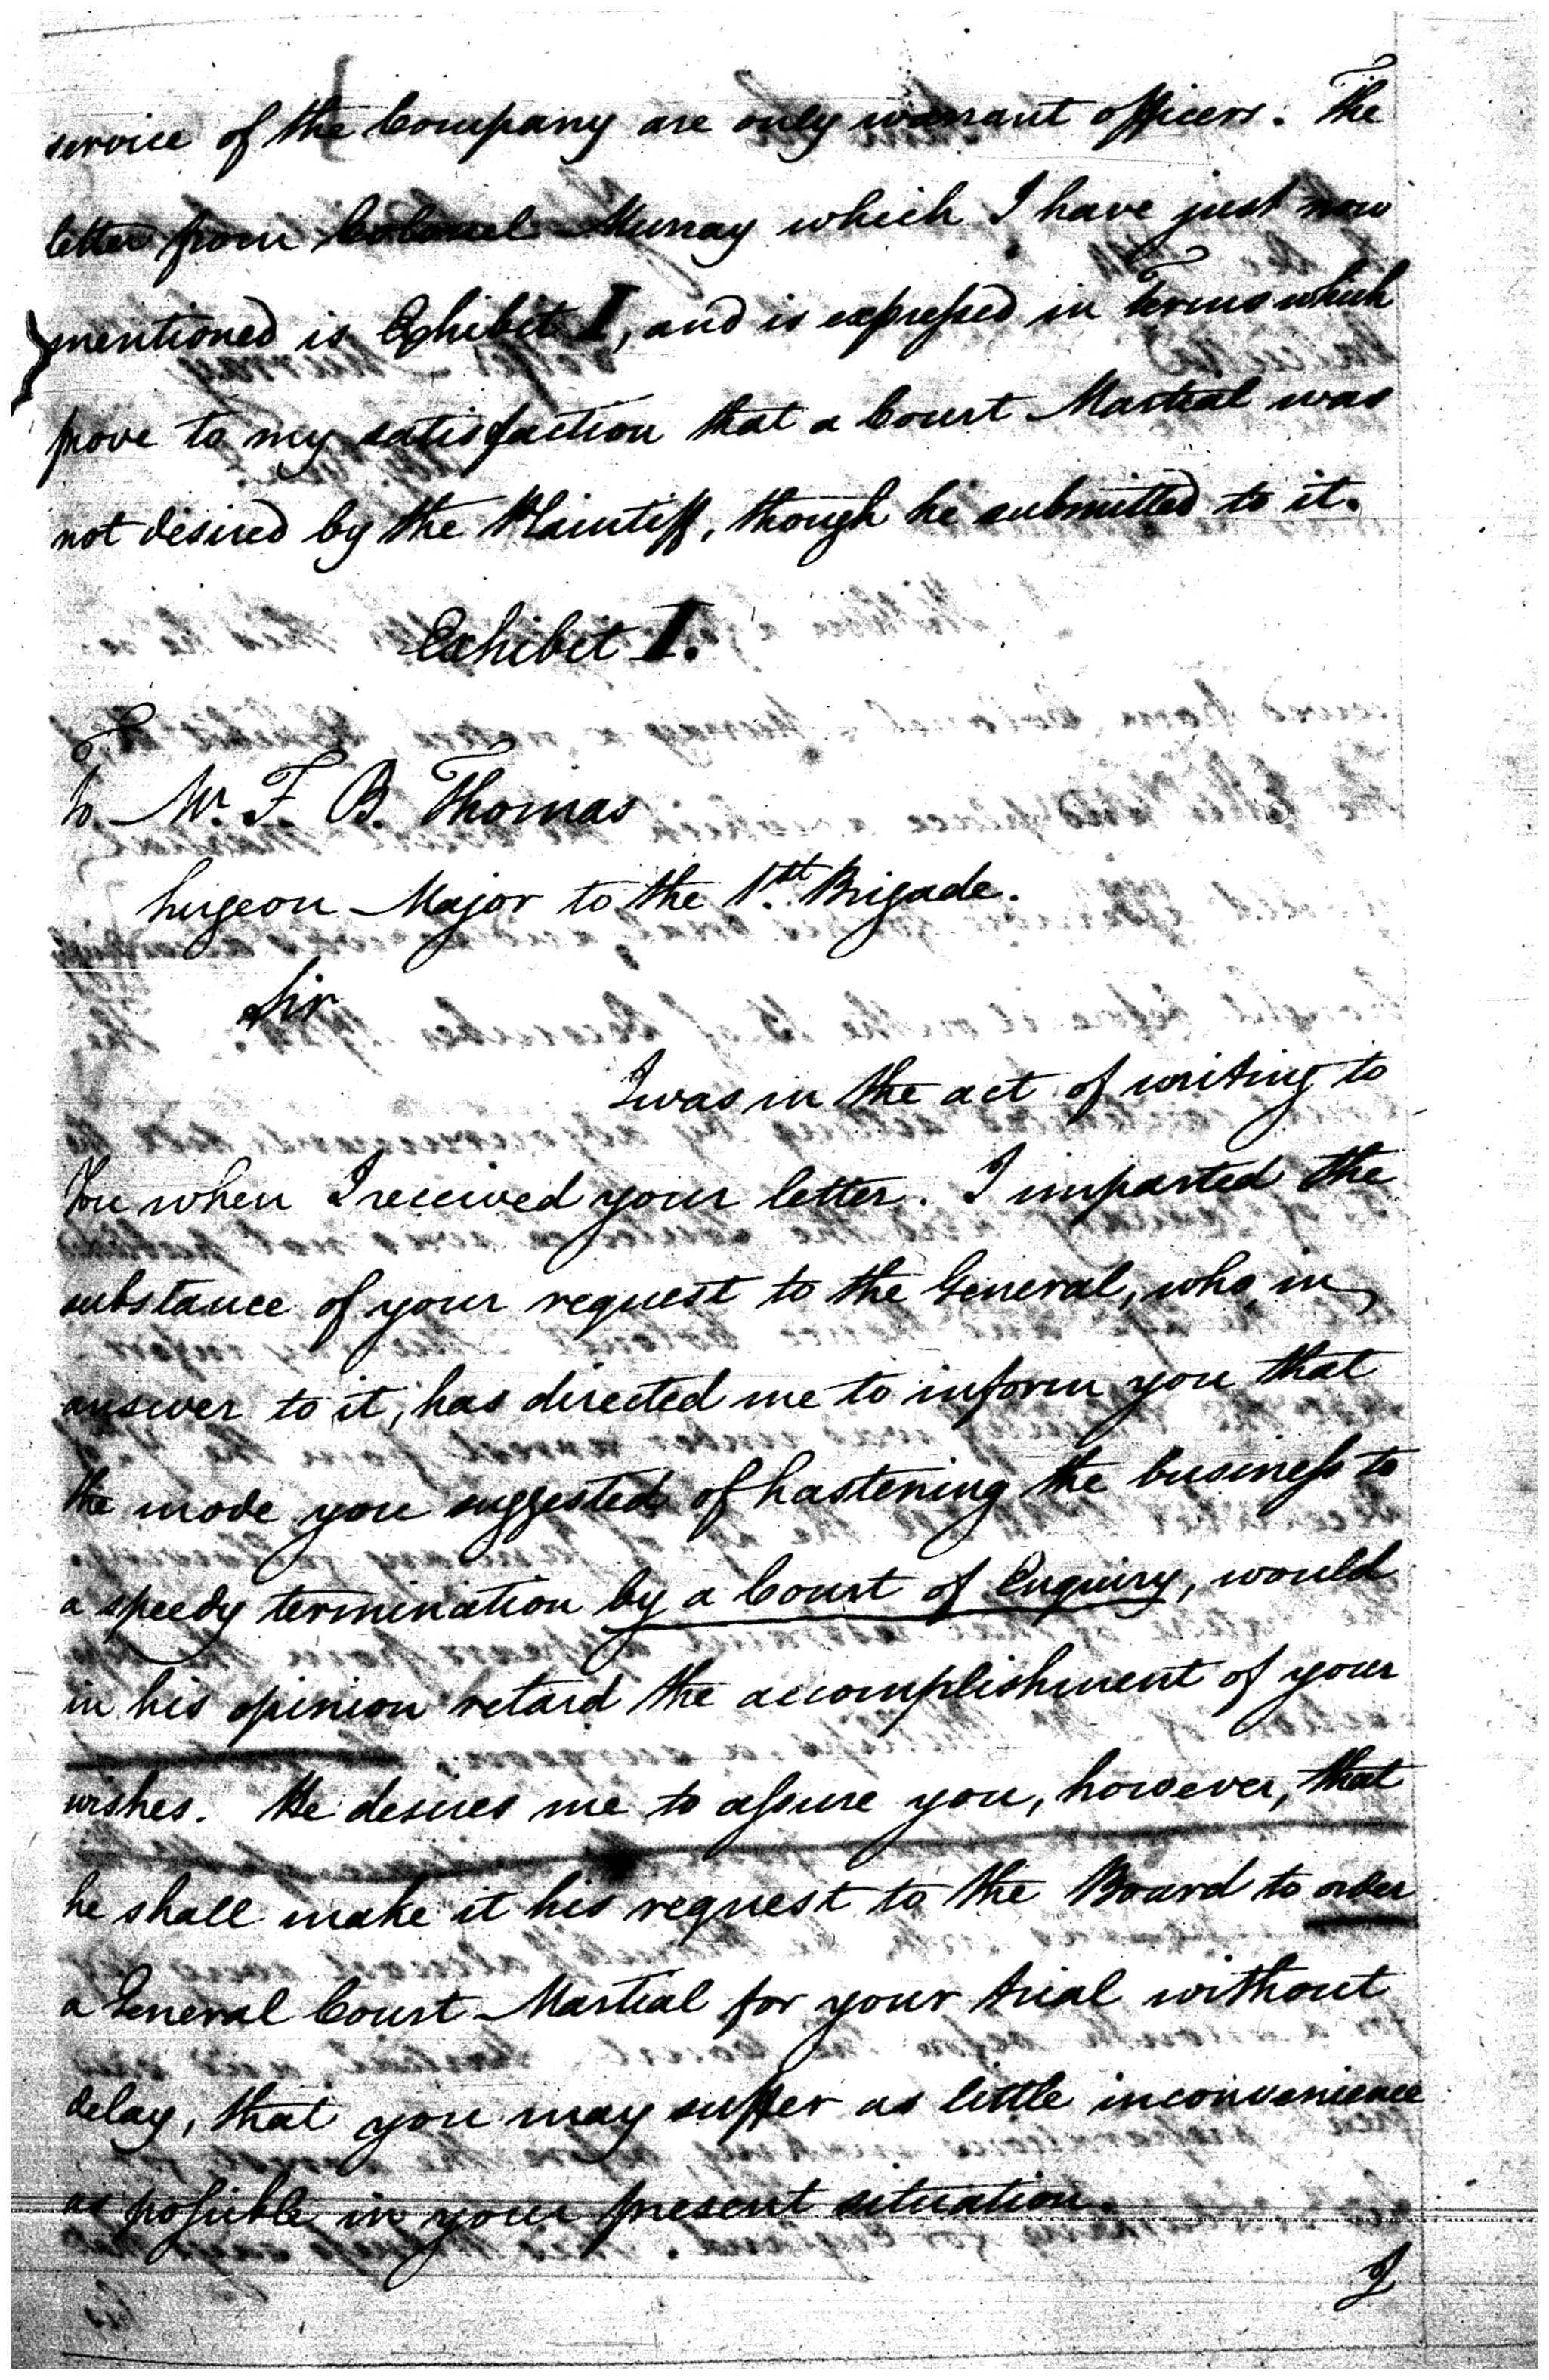 service of the Company are only warrant officers. The
letter from Colonel Murray which I have just now
mentioned is Exhibit I, and is expressed in Terms which
prove to my satisfaction that a Court Martial was
not desired by the Plaintiff, though he submitted to it.
Exhibit I.
To Mr. F. B. Thomas
Surgeon Major to the 1st. Brigade.
Sir
I was in the act of writing to
You when I received your letter. I imparted the
substance of your request to the General, who, in
answer to it, has directed me to inform you that
the mode you suggested of hastening the business to
a speedy termination by a Court of Enquiry, would
in his opinion retard the accomplishment of your
wishes. He desires me to assure you, however, that
he shall make it his request to the Board to order
a General Court Martial for your trial without
delay, that you may suffer as little inconvenience
as possible in your present situation.
I